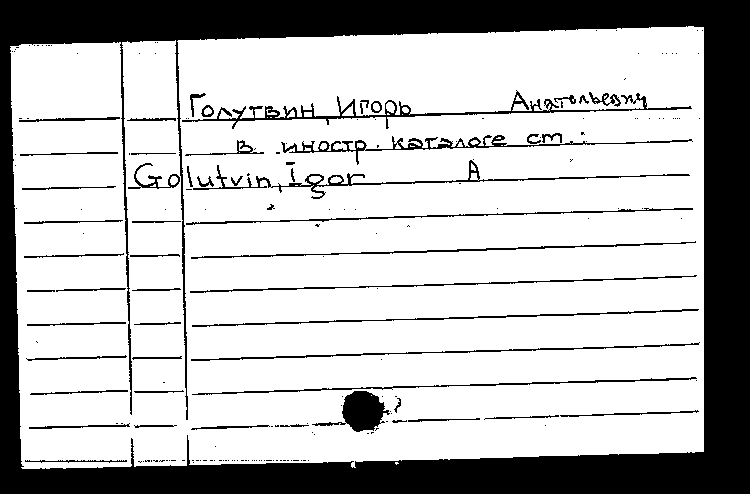 Голутвин, Игорь Анатольевич
в иностр. каталоге ст.:
Golutvin, Igor A